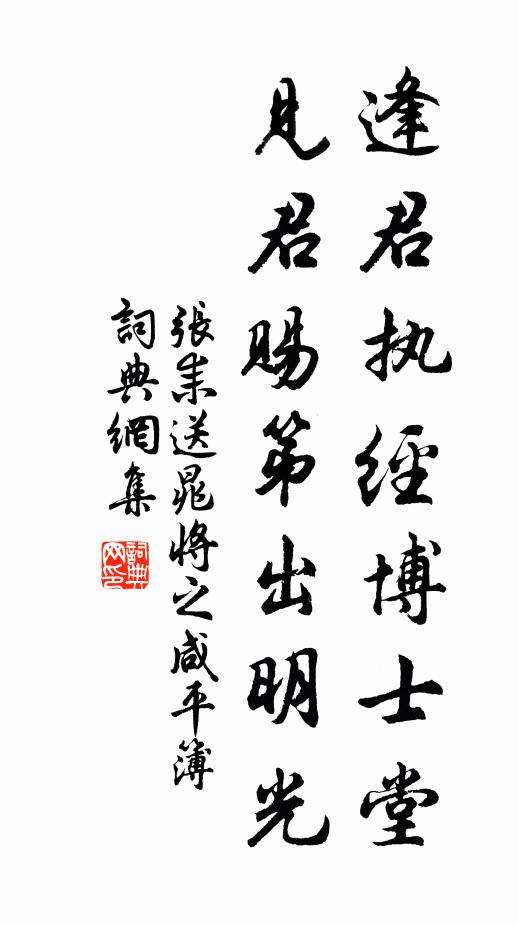 逢君执經博士堂
見君賜第出明光
張耒送晁將之咸平簿
詞典網集
詞典网印